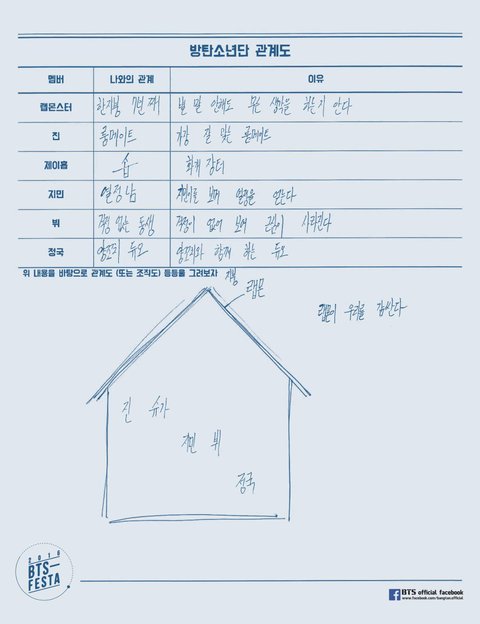 방탄소년단 관계도
멤버 나와의 관계 이유
랩몬스터 한지붕 7년 째 별 말 안해도 무슨 생각을 하는지 안다
진 룸메이트 가장 잘 맞는 룸메이트
제이홉 숍 회개 장터
지민 열정남 지민이를 보며 열정을 얻는다
뷔 걱정 없는 동생 걱정이 없어 보여 근심이 사라진다
정국 양꼬치 듀오 양꼬치와 함께 하는 듀오
위 내용을 바탕으로 관계도 (또는 조직도) 등등을 그려보자
지붕
랩몬
랩몬이 우리를 감싼다
진 슈가
지민 뷔
정국
2016
BTS
FESTA
BTS official facebook
www.facebook.com/bangtan.official